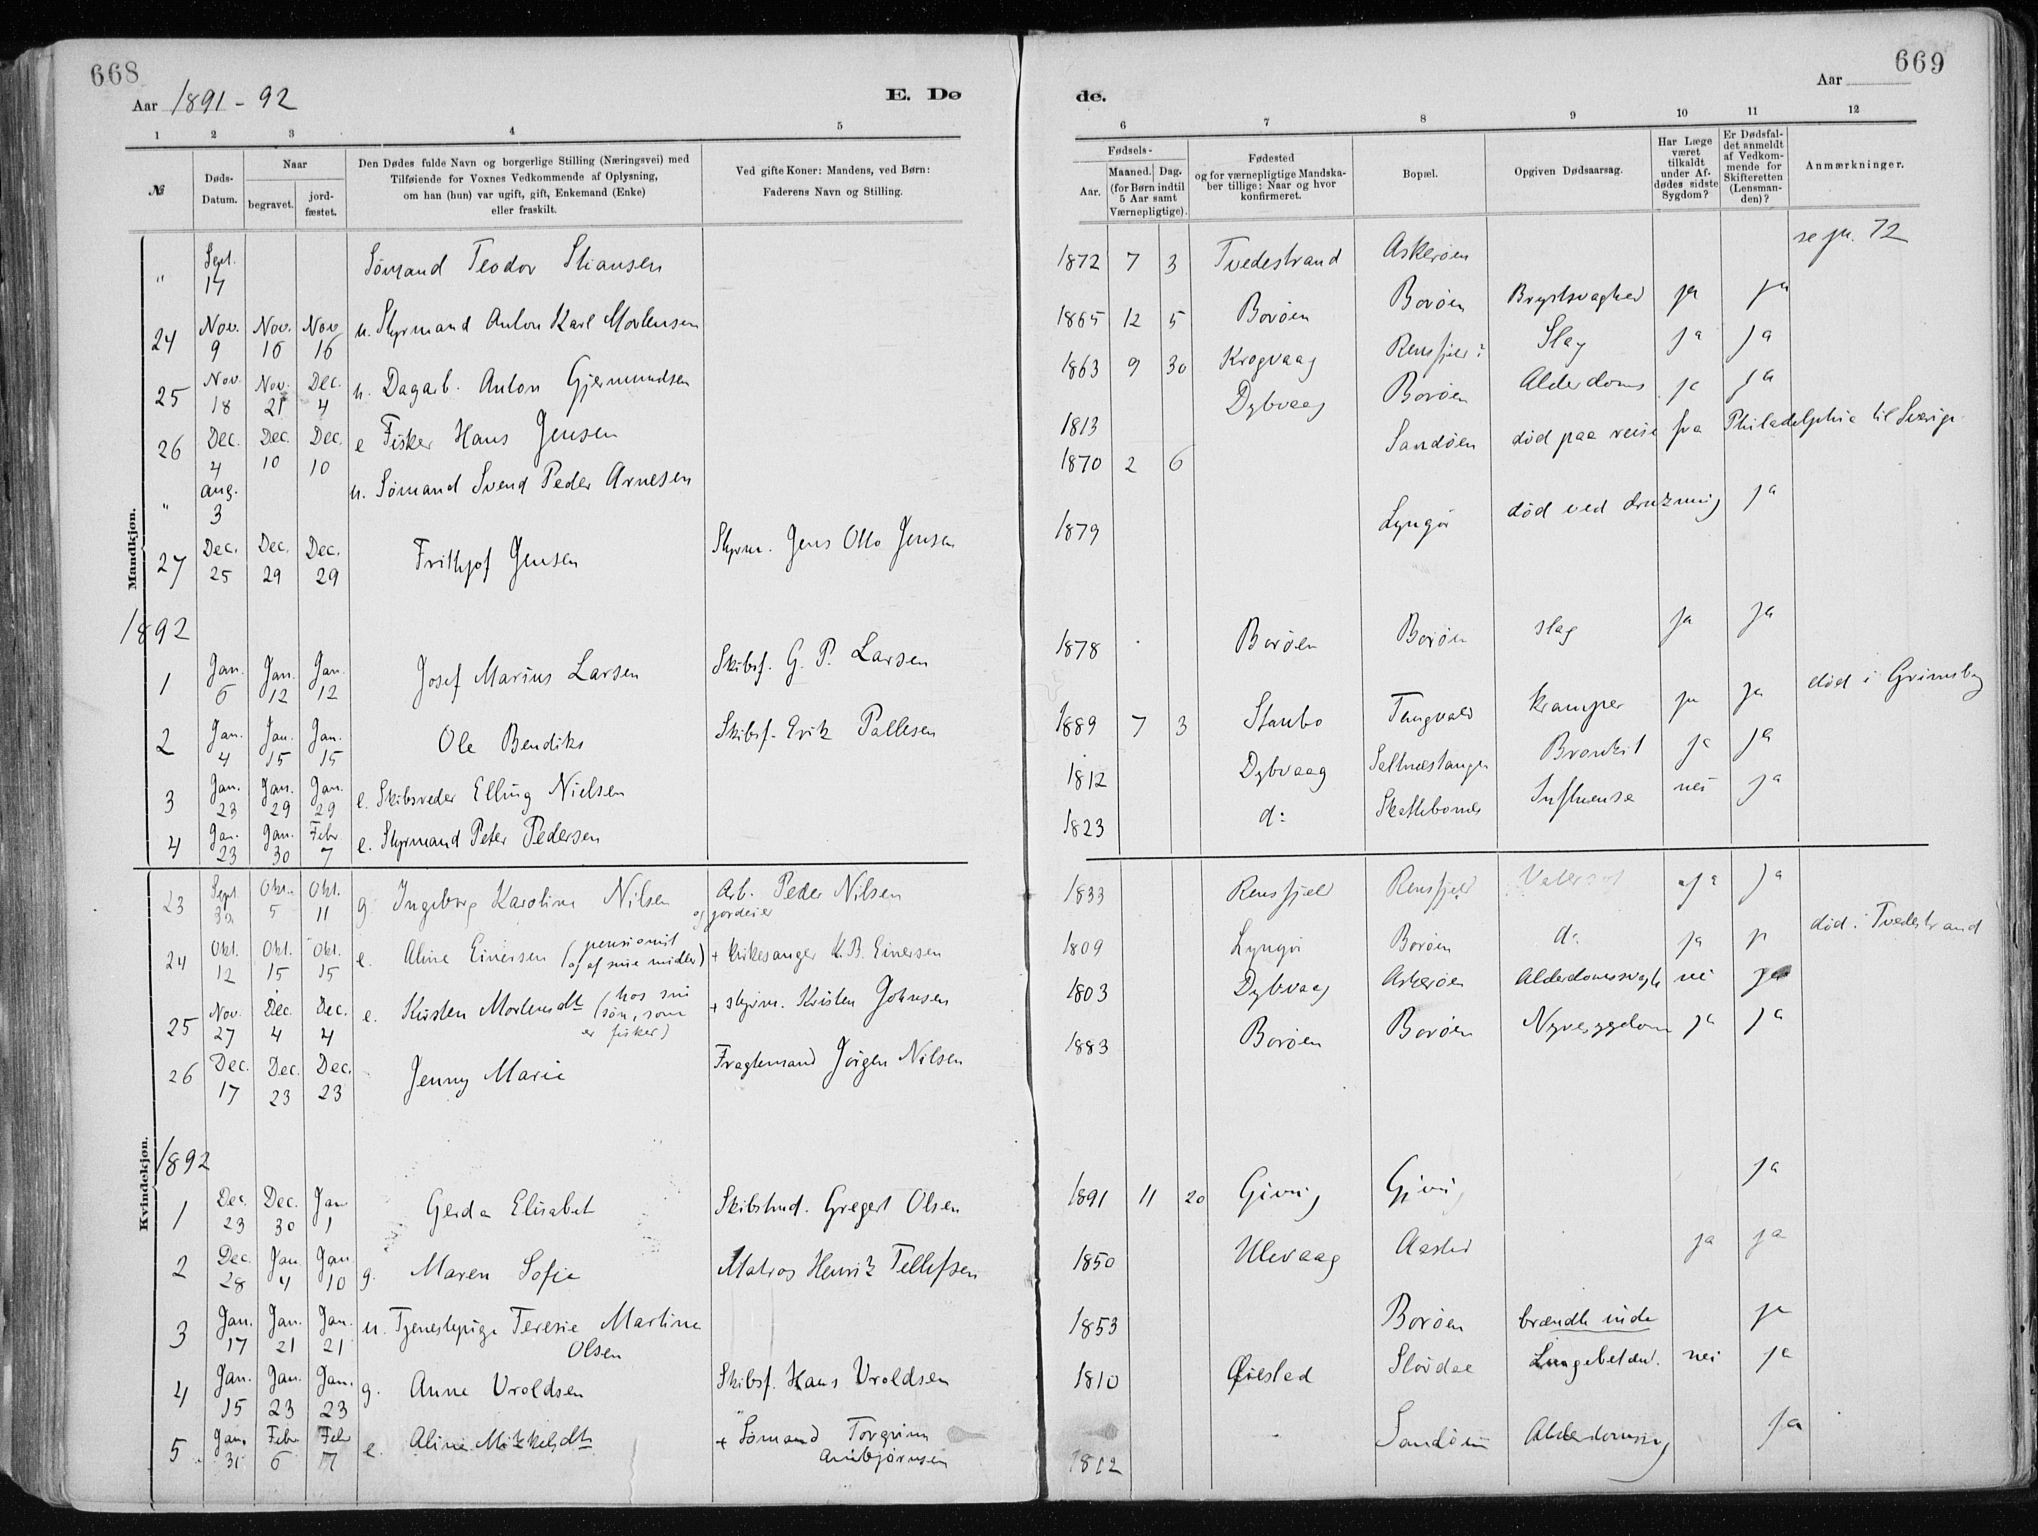 668
Aar 1891-92
E. Dø
1 2 3 4 5
№
Døds-Datum.
Naar
begravet.
jord-fæstet.
Den Dødes fulde Navn og borgerlige Stilling (Næringsvei) med
Tilføiende for Voxnes Vedkommende af Oplysning,
om han (hun) var ugift, gift, Enkemand (Enke)
eller fraskilt.
Ved gifte Koner: Mandens, ved Børn:
Faderens Navn og Stilling.
Mandkjøn.
" Sept. 14 Sømand Teodor Stiansen
24 Nov. 9 Nov. 16 Nov 16 u. Styrmand Anton Karl Mortensen
25 Nov. 18 Nov. 21 Dec. 4 u. Dagarb. Anton Gjermundsen
26 Dec. 4 Dec. 10 Dec. 10 e Fisker Hans Jensen
" Aug. 3 u. Sømand Svend Peder Arnesen
27 Dec. 25 Dec. 29 Dec. 29 Frithjof Jensen Styrm. Jens Otto Jensen
1892
1 Jan. 6 Jan. 12 Jan. 12 Josef Marius Larsen Skibsf. G. P. Larsen
2 Jan. 4 Jan. 15 Jan. 15 Ole Bendiks Skibsf. Erik Pallesen
3 Jan. 23 Jan. 29 Jan. 29 e. Skibsreder Elling Nielsen
4 Jan. 23 Jan. 30 Febr 7 e. Styrmand Peter Pedersen
Kvindekjøn.
23 Sept Okt. 5 Okt. 11 g. Ingeborg Karoline Nilsen Arb. og jordeier Peder Nilsen
24 Okt. 12 Okt. 15 Okt. 15 e. Aline Einersen (pensionist og af sine midler) + kirkesanger K. B. Einersen
25 Nov. 27 Dec. 4 Dec. 4 e. Kirsten Mortensdt (hos sin søn, som er fisker) + styrm. Kristen Johnsen
26 Dec. 17 Dec. 23 Dec. 23 Jenny Marie Fragtemand Jörgen Nilsen
1892
1 Dec. 23 Dec. 30 Jan 1 Gerda Elisabet Skibstmd. Gregert Olsen
2 Dec. 28 Jan 4 Jan. 10 g. Maren Sofie Matros Henrik Tellefsen
3 Jan. 17 Jan. 21 Jan. 21 u. Tjenestepige Teresie Martine Olsen
4 Jan. 15 Jan. 23 Jan. 23 g. Anne Uroldsen Skibsf. Hans Uroldsen
5 Jan. 31 Febr 6 Febr 7 e. Aline Mikkelsdtr + Sømand Torgrim Annbjørnsen
669
Aar
de.
6 7 8 9 10 11 12
Fødsels-
Aar.
Maaned. Dag.
(for Børn indtil
5 Aar samt
Værnepligtige).
Fødested
og for værnepligtige Mandska-
ber tillige: Naar og hvor
konfirmeret.
Bopæl.
Opgiven Dødsaarsag.
Har Læge
været
tilkaldt
under Af-
dødes sidste
Sygdom?
Er Dødsfal-
det anmeldt
af Vedkom-
mende for
Skifteretten
(Lensman-
den)?
Anmærkninger.
1872 7 3 Tvedestrand Askerøen se pr. 72
1865 12 5 Borøen Borøen Brystsvaghed ja ja
1863 9 30 Krogvaag Rensfjeld Slag ja ja
1813 Dybvaag Borøen Alderdoms ja ja
1870 2 6 Sandøen död paa reise fra Philadelphia til Sverige
1879 Lyngør död ved drukning ja
1878 Borøen Borøen slag ja ja
1889 7 3 Staubo Tangvald kramper ja ja död i Grimsby
1812 Dybvaag Saltnæstangen Bronkit ja ja
1823 do Skattebonæs Influensa nei ja
1833 Rensfjeld Rensfjeld ja ja
1809 Lyngør Borøen do ja ja død i Tvedestrand
1803 Dybvaag Askerøen Alderdomssvagh nei ja
1883 Borøen Borøen Nyresygdom ja ja
1891 11 20 Giving Gjving ja
1850 Ulevaag Aasted ja ja
1853 Borøen brændte inde ja
1810 Øiestad Slövdal Lungebetænd. nei ja
1812 Sandøen ja